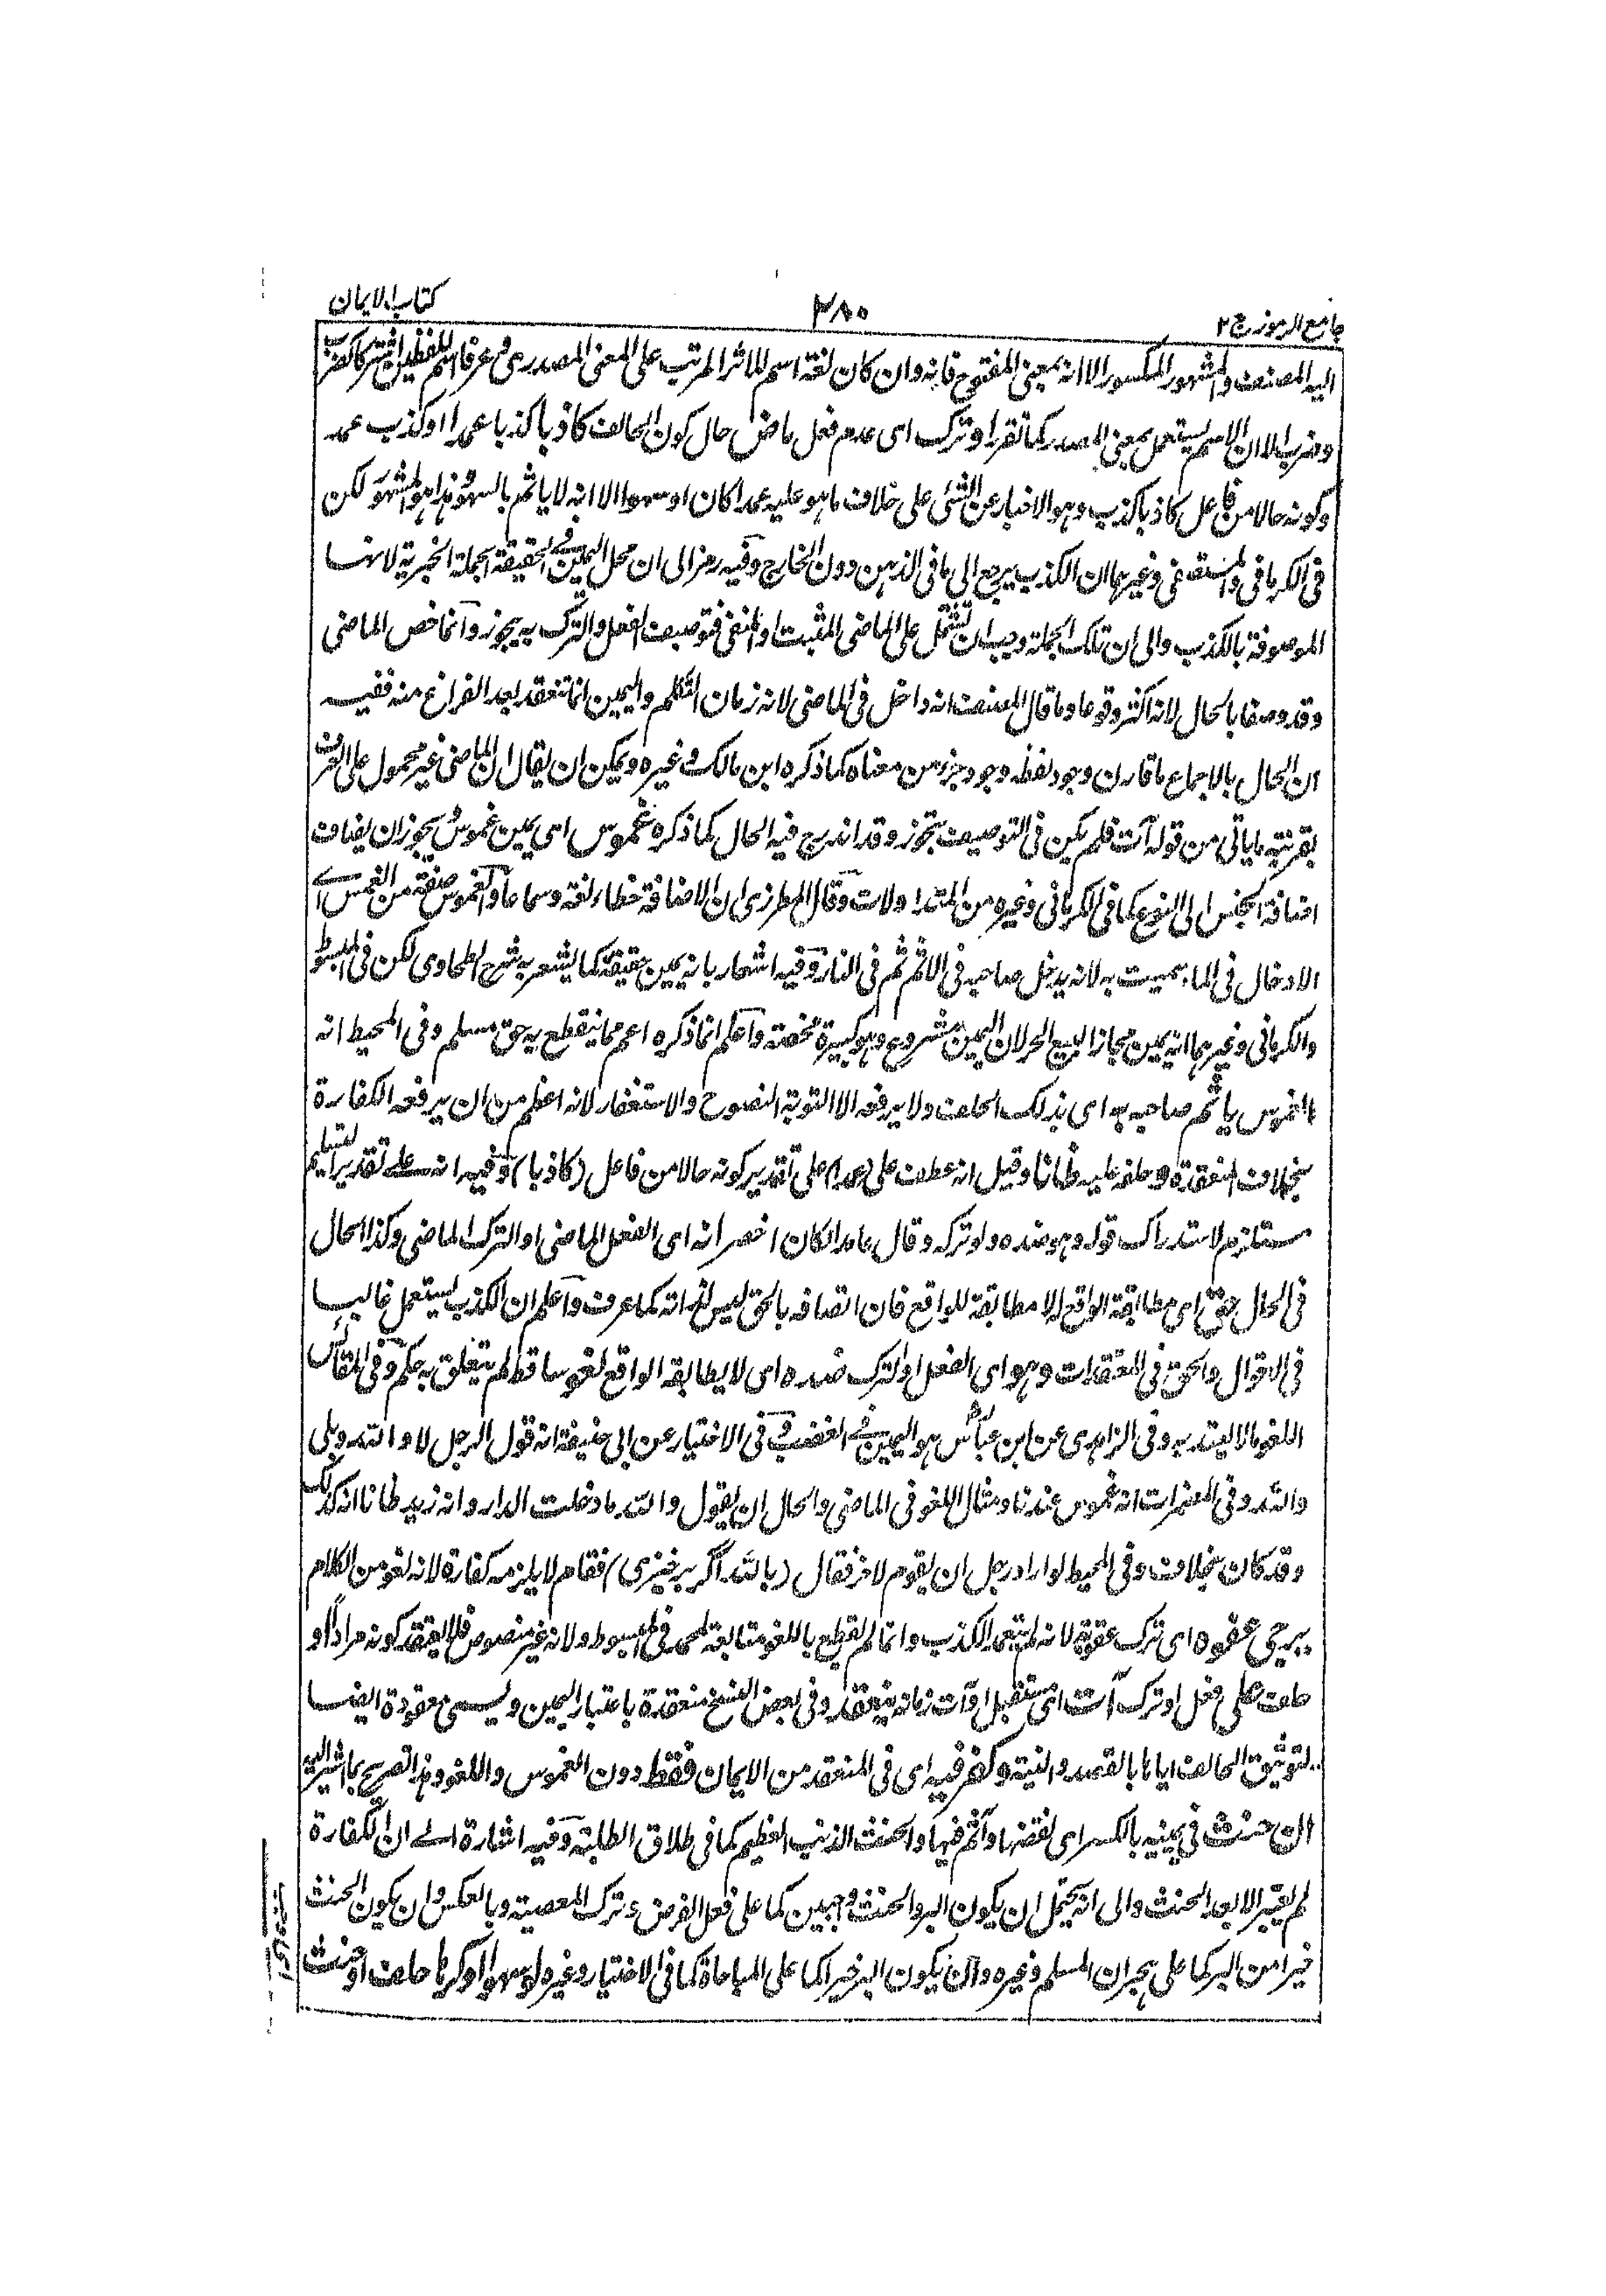 جامع الرموز ج ٢
٢٨٠
كتاب الايمان
اليه المصنف والمشهور المكسور الا انه بمعنى المفتوح فانه وان كان لغة اسم للاثر المرتب على المعنى المصدرى وعرفا اسم للفظين اشتركا كضرب
وضرب الا ان الاسم يستعمل بمعنى المصدر كما تقرر او ترك اى عدم فعل ماض حال كون الحالف كاذبا كذبا عمدا او كذب عمد
وكونه حالا من فاعل كاذبا كذب وهو الاخبار عن الشئ على خلاف ما هو عليه عمدا كان او سهوا الا انه لا ياثم بالسهو وهذا هو المشهور لكن
فى الكرمانى والمستصفى وغيرهما ان الكذب يرجع الى ما فى الذهن دون الخارج وفيه رمز الى ان محل اليمين فى الحقيقة الجملة الخبرية لانها
الموصوفة بالكذب والى ان تلك الجملة وجب ان تشتمل على الماضى المثبت او المنفى فتوصيف الفعل والترك به يجوز وانما خص الماضى
وقد وصفا بالحال لانه اكثر وقوعا وما قال المصنف انه داخل فى الماضى لانه زمان التكلم واليمين انما تنعقد بعد الفراغ منه ففيه
ان الحال بالاجماع ما قارن وجود لفظه وجود جزء من معناه كما ذكره ابن مالك وغيره ويمكن ان يقال ان الماضى غير محمول على العرف
بقرينة ما ياتى من قوله آت فلم يكن فى التوصيف تجوز وقد اندرج فيه الحال كما ذكره غموس اى يمين غموس ويجوز ان يضاف
اضافة الجنس الى النوع كما فى الكرمانى وغيره من المتداولات وقال المطرزى ان الاضافة خطاء لغة وسماعا والغموس صفة من الغمس اے
الادخال فى الماء سميت به لانه يدخل صاحبه فى الاثم ثم فى النار وفيه اشعار بانه يمين حقيقة كما يشعر به شرح الطحاوى لكن فى المبسوط
والكرمانى وغيرهما انه يمين مجازا كبيع الحر لان اليمين مشروع وهو كبيرة محضة واعلم انما ذكره اعم مما يقطع به حق مسلم وفى المحيط انه
الغموس ياثم صاحبه به اى بذلك الحلف ولا يرفعه الا التوبة النصوح والاستغفار لانه اعظم من ان يرفعه الكفارة
بخلاف المنعقدة وحلفه عليه ظانا وقيل انه عطف على (عمدا) على تقدير كونه حالا من فاعل (كاذبا) وفيه انه علے تقدير التسليم
مستلزم لاستدراك قوله وهو ضده ولو تركه وقال عامدا لكان اخصر انه اى الفعل الماضى او الترك الماضى وكذا الحال
فى الحال حق اى مطابقة الواقع له لا مطابقة للواقع فان اتصافه بالحق ليس لذاته كما عرف واعلم ان الكذب يستعمل غالبا
فى الاقوال والحق فى المعتقدات وهو اى الفعل او الترك ضده اى لا يطابقه الواقع لغو ساقط لم يتعلق به حكم وفى المقائس
اللغو ما لا يعتد به وفى الزاهدى عن ابن عباس هو اليمين فے الغضب وفى الاختيار عن ابى حنيفة انه قول الرجل لا والله وبلى
والله وفى المضمرات انه غموس عندنا ومثال اللغو فى الماضى والحال ان يقول والله ما دخلت الدار وانه زيد ظانا انه كذلك
وقد كان بخلاف وفى المحيط لو اراد رجل ان يقوم لاخر فقال (بالله اگر برخيزى) فقام لا يلزمه كفارة لانه لغو من الكلام
يرجى عفوه اى ترك عقوبة لانه لم يتعمد الكذب وانما لم يقطع باللغو متابعة لمحمد فى المبسوط ولانه غير منصوص فلا يعتقد كونه مرادا او
حلف على فعل او ترك آت اى مستقبل او آت زمانه منعقد وفى بعض النسخ منعقدة باعتبار اليمين ويسمى معقودة ايضا
لتوثيق الحالف اياها بالقصد والنية وكفر فيه اى فى المنعقد من الايمان فقط دون الغموس واللغو وهذا تصريح بما اشير اليه
ان حنث فى يمينه بالكسر اى نقضها واثم فيها والحنث الذنب العظيم كما فى طلاق الطلبة وفيه اشارة الے ان الكفارة
لم يعتبر الا بعد الحنث والى انه يحتمل ان يكون البر والحنث واجبين كما على فعل الفرض وترك المعصية وبالعكس وان يكون الحنث
خيرا من البر كما على هجران المسلم وغيره وان يكون البر خيرا كما على المباحاة كما فى الاختيار وغيره ولو سهوا او كرها حلف او حنث